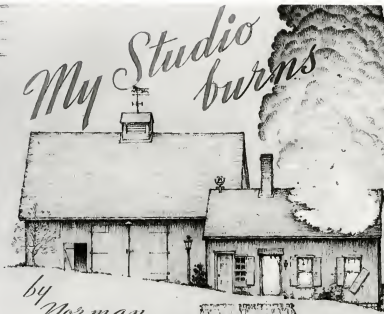 My Studio
burns
by
Norman